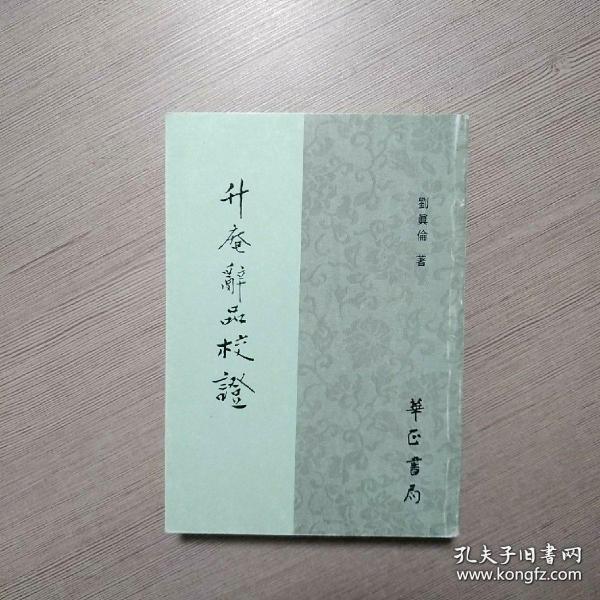 升庵辭品校證
劉眞倫 著
華正書局
孔夫子旧书网
www.kongfz.com